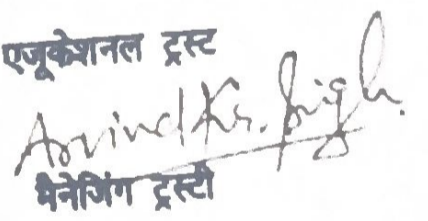 एजूकेशनल ट्रस्ट
Arvind Kr. Singh.
मैनेजिंग ट्रस्टी